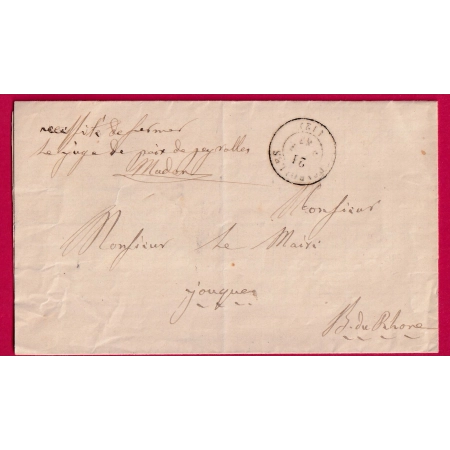 necessité de fermer
Le juge de paix de peyrolles
Mudon
Monsieur
Monsieur Le Maire
jouques
B. du Rhone
(12)
21